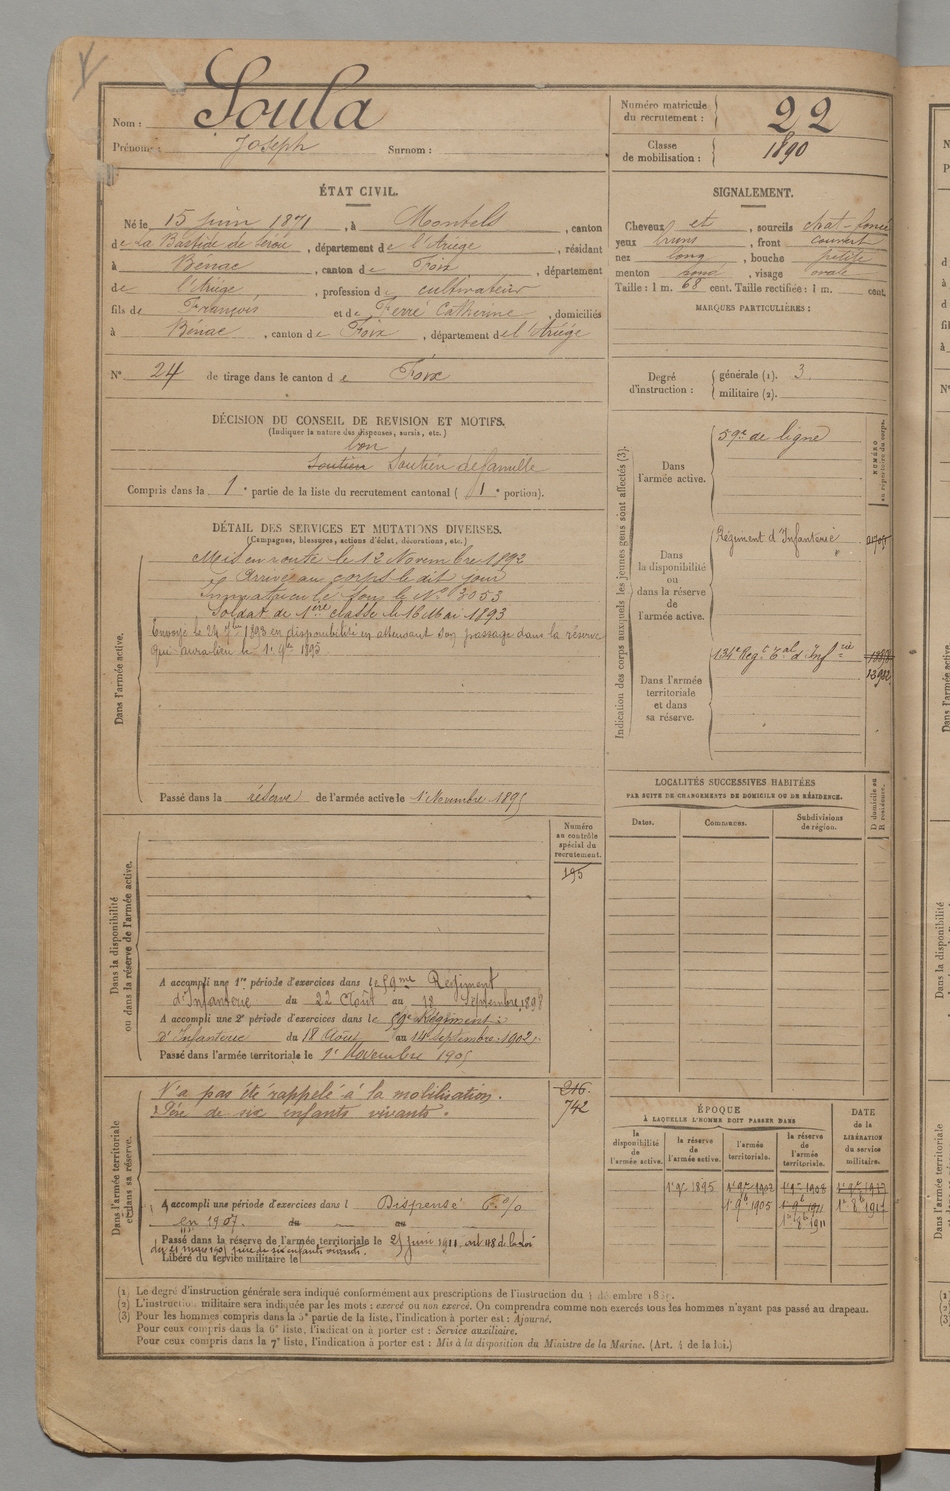 Nom : Soula
Prénoms : Joseph Surnom :
Numéro matricule du recrutement : 22
Classe de mobilisation : 1890
ÉTAT CIVIL.
Né le 15 juin 1871, à Montels, canton
de La Bastide de Sérou, département de l'Ariège, résidant
à Bénac, canton de Foix, département
de l'Ariège, profession de cultivateur
fils de François et de Ferré Catherine, domiciliés
à Bénac, canton de Foix, département de l'Ariège
N° 24 de tirage dans le canton de Foix
SIGNALEMENT.
Cheveux et, sourcils chat-foncé
yeux bruns, front couvert
nez long, bouche petite
menton rond, visage ovale
Taille : 1 m. 68 cent. Taille rectifiée : 1 m. cent.
MARQUES PARTICULIÈRES :
Degré d'instruction : générale (1). 3.
militaire (2).
DÉCISION DU CONSEIL DE REVISION ET MOTIFS.
(Indiquer la nature des dispenses, sursis, etc.)
bon
Soutien Soutien de famille
Compris dans la 1e partie de la liste du recrutement cantonal ( 1e portion).
DÉTAIL DES SERVICES ET MUTATIONS DIVERSES.
(Campagnes, blessures, actions d'éclat, décorations, etc.)
Dans l'armée active.
Mis en route le 12 Novembre 1892
Arrivé au corps le dit jour
Immatriculé sous le N° 3053
Soldat de 1ère classe le 16 Mai 1893
Envoyé le 24 7bre 1893 en disponibilité en attendant son passage dans la réserve
qui aura lieu le 1er 9bre 1895
Passé dans la réserve de l'armée active le 1er Novembre 1895
Indication des corps auxquels les jeunes gens sont affectés (3).
NUMÉRO au répertoire du corps.
Dans l'armée active.
59e de ligne
Dans la disponibilité ou dans la réserve de l'armée active.
Régiment d'Infanterie
Dans l'armée territoriale et dans sa réserve.
134e Régt Tal d'Infrie
LOCALITÉS SUCCESSIVES HABITÉES
PAR SUITE DE CHANGEMENTS DE DOMICILE OU DE RÉSIDENCE.
Dates. Communes. Subdivisions de région. D domicile ou R résidence.
Dans la disponibilité ou dans la réserve de l'armée active.
Numéro au contrôle spécial du recrutement.
195
A accompli une 1re période d'exercices dans le 59me Régiment
d'Infanterie du 22 Août au 18 Septembre 1898
A accompli une 2e période d'exercices dans le 59e Régiment
d'Infanterie du 18 Août au 14 Septembre 1902.
Passé dans l'armée territoriale le 1er Novembre 1905
Dans l'armée territoriale et dans sa réserve.
N'a pas été rappelé à la mobilisation.
Père de six enfants vivants.
216
742
A accompli une période d'exercices dans l Dispensé 6%
en 1907. du au
Passé dans la réserve de l'armée territoriale le 25 juin 1911, art 48 de la Loi
du 21 mars 1905 père de six enfants vivants.
Libéré du service militaire le
ÉPOQUE
À LAQUELLE L'HOMME DOIT PASSER DANS
DATE de la LIBÉRATION du service militaire.
la disponibilité de l'armée active. la réserve de l'armée active. l'armée territoriale. la réserve de l'armée territoriale.
1er 9bre 1895 1er 9bre 1902 1er 9bre 1908
1er 9b 1905 1er 9b 1911 1er 8b 1917
1er 8b 1911
(1) Le degré d'instruction générale sera indiqué conformément aux prescriptions de l'instruction du
(2) L'instruction militaire sera indiquée par les mots : exercé ou non exercé. On comprendra comme non exercés tous les hommes n'ayant pas passé au drapeau.
(3) Pour les hommes compris dans la 5e partie de la liste, l'indication à porter est : Ajourné.
Pour ceux compris dans la 6e liste, l'indication à porter est : Service auxiliaire.
Pour ceux compris dans la 7e liste, l'indication à porter est : Mis à la disposition du Ministre de la Marine. (Art. 4 de la loi.)